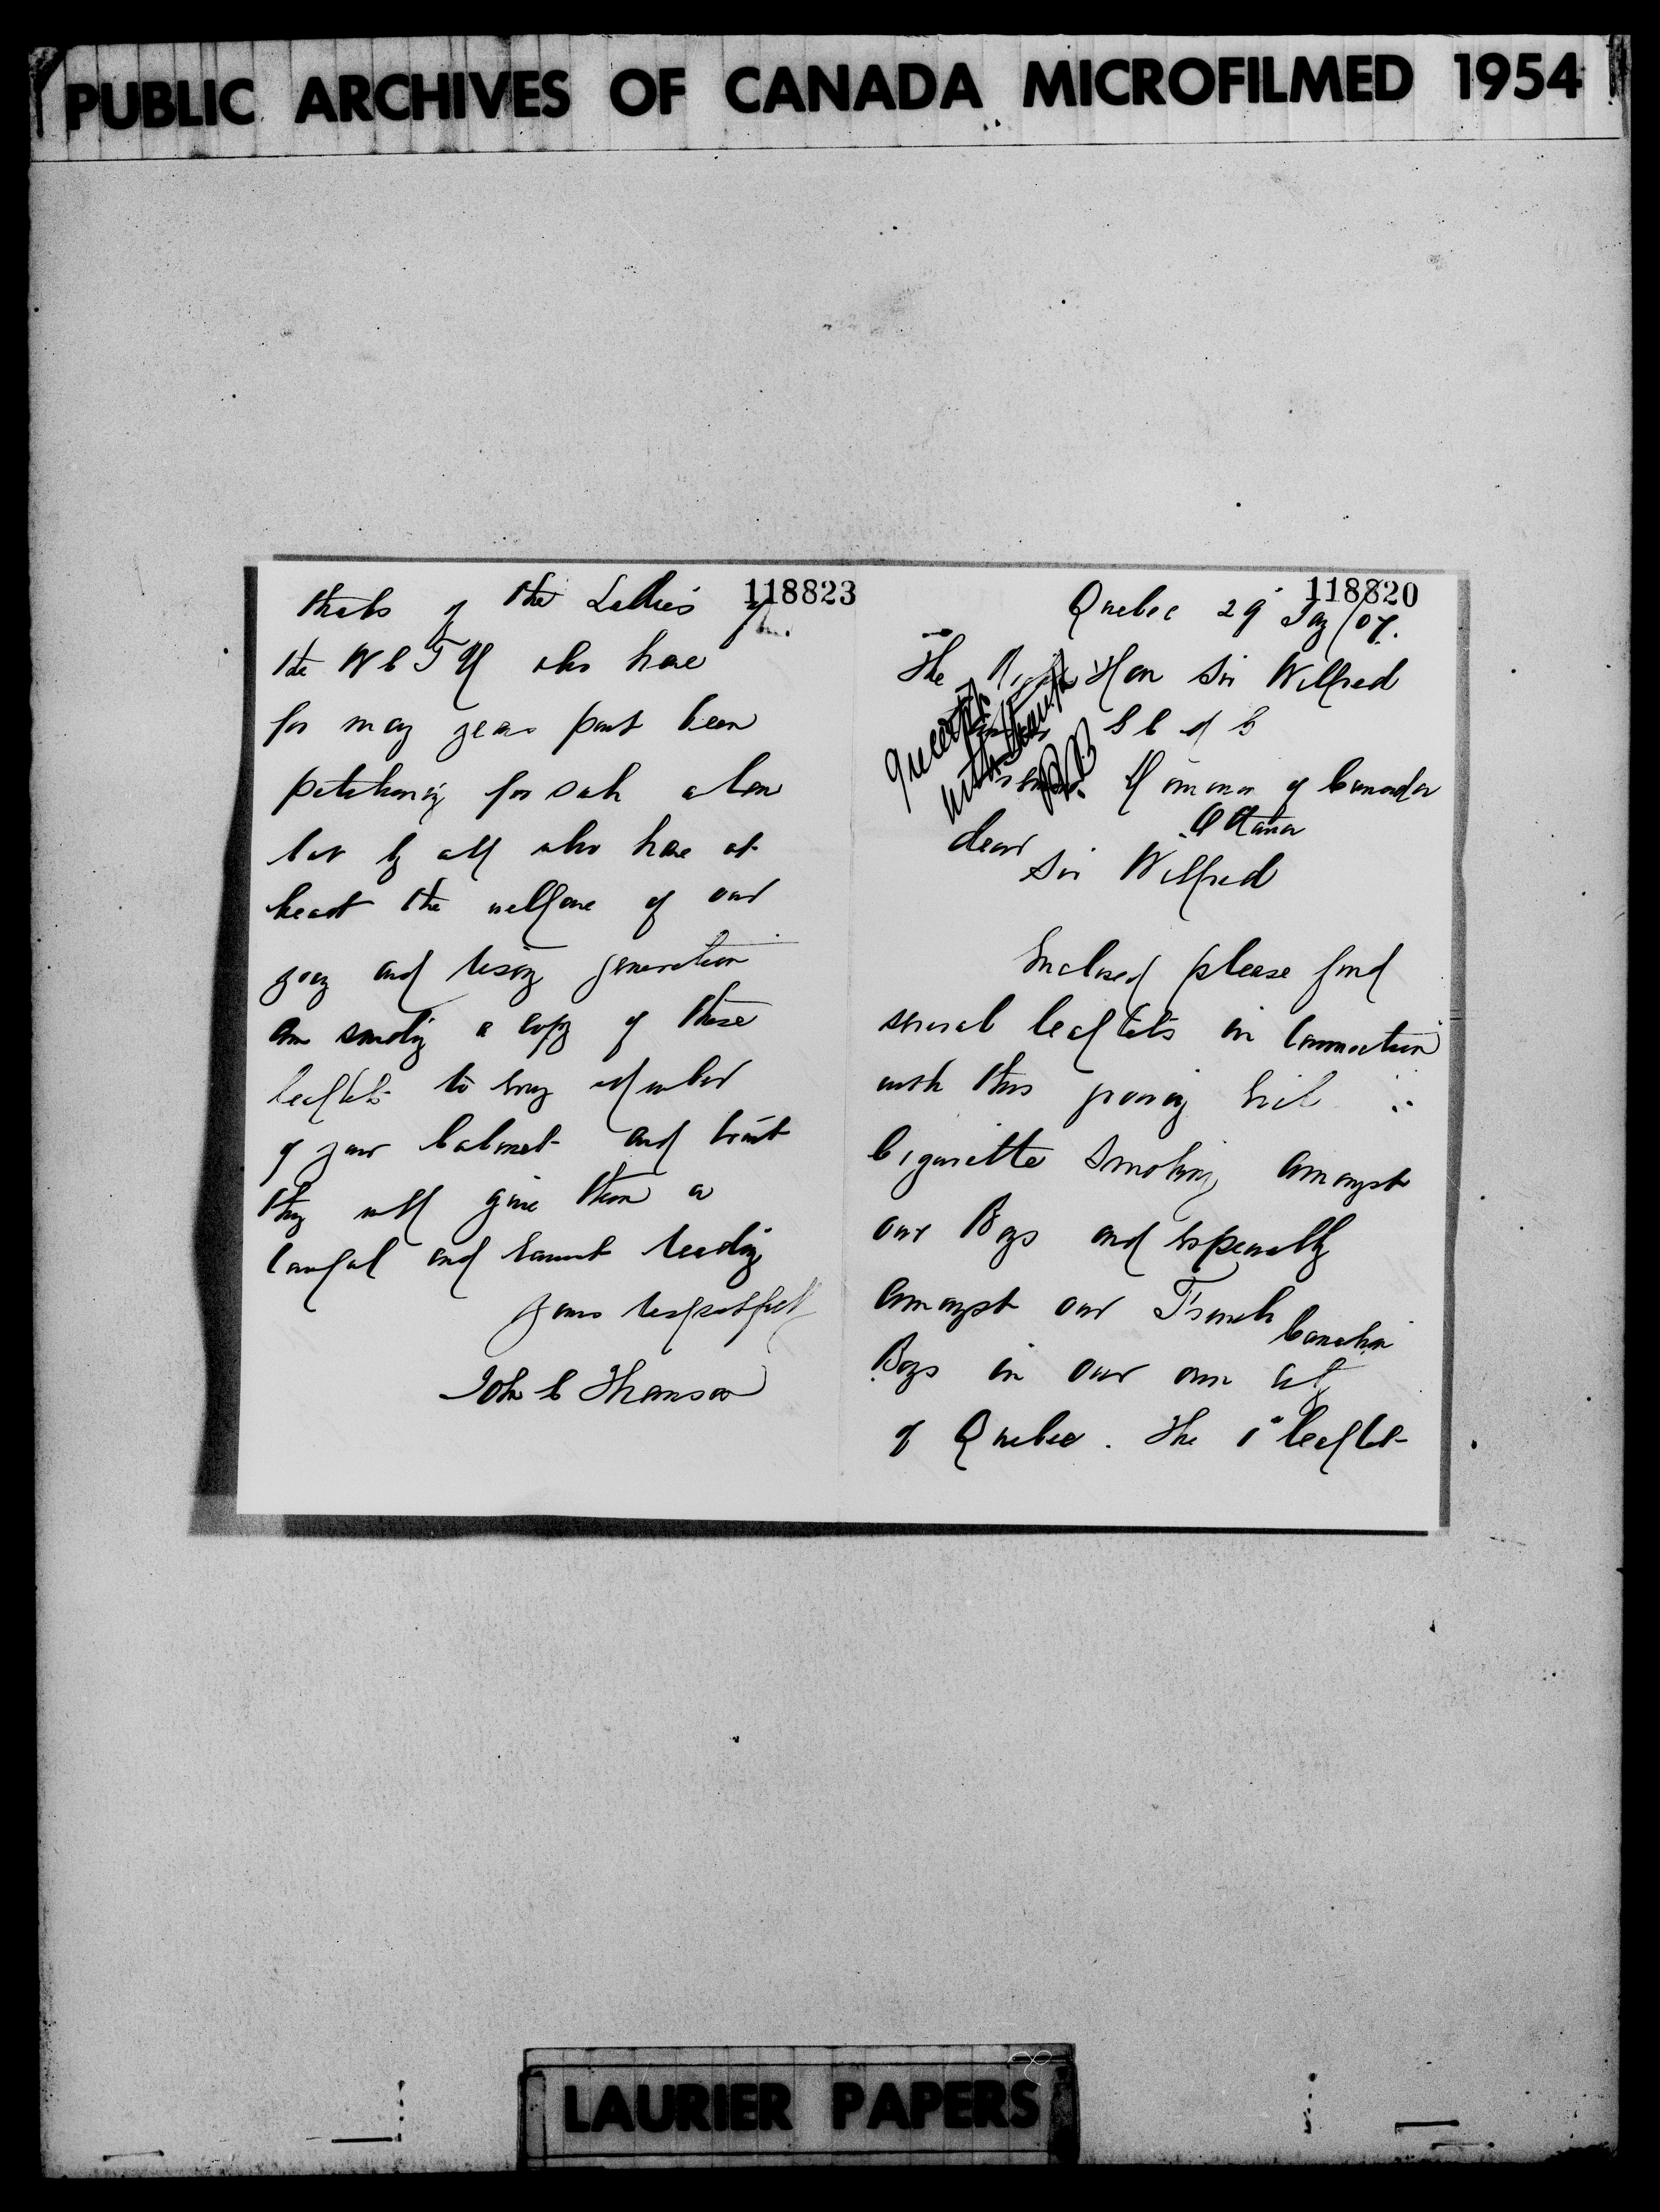 PUBLIC ARCHIVES OF CANADA MICROFILMED 1954
118823
thanks of the Ladies of
the W C T U who have
for many years past been
petitioning for such a law
but by all who have at
heart the welfare of our
young and rising generation
am sending a copy of these
leaflets to every Member
of your Cabinet and trust
they will give them a
careful and earnest reading
yours respectfully
John C Thomson
118820
Quebec 29 Jany /07.
The Right Hon Sir Wilfred
G C M G
of Canada
Ottawa
dear
Sir Wilfred
Enclosed please find
several leaflets in Connection
with this growing Evil
Cigarette Smoking amongst
our Boys and Especially
amongst our French
Canadian
Boys in our own City
of Quebec. The 1st leaflet
with thanks
LAURIER PAPERS